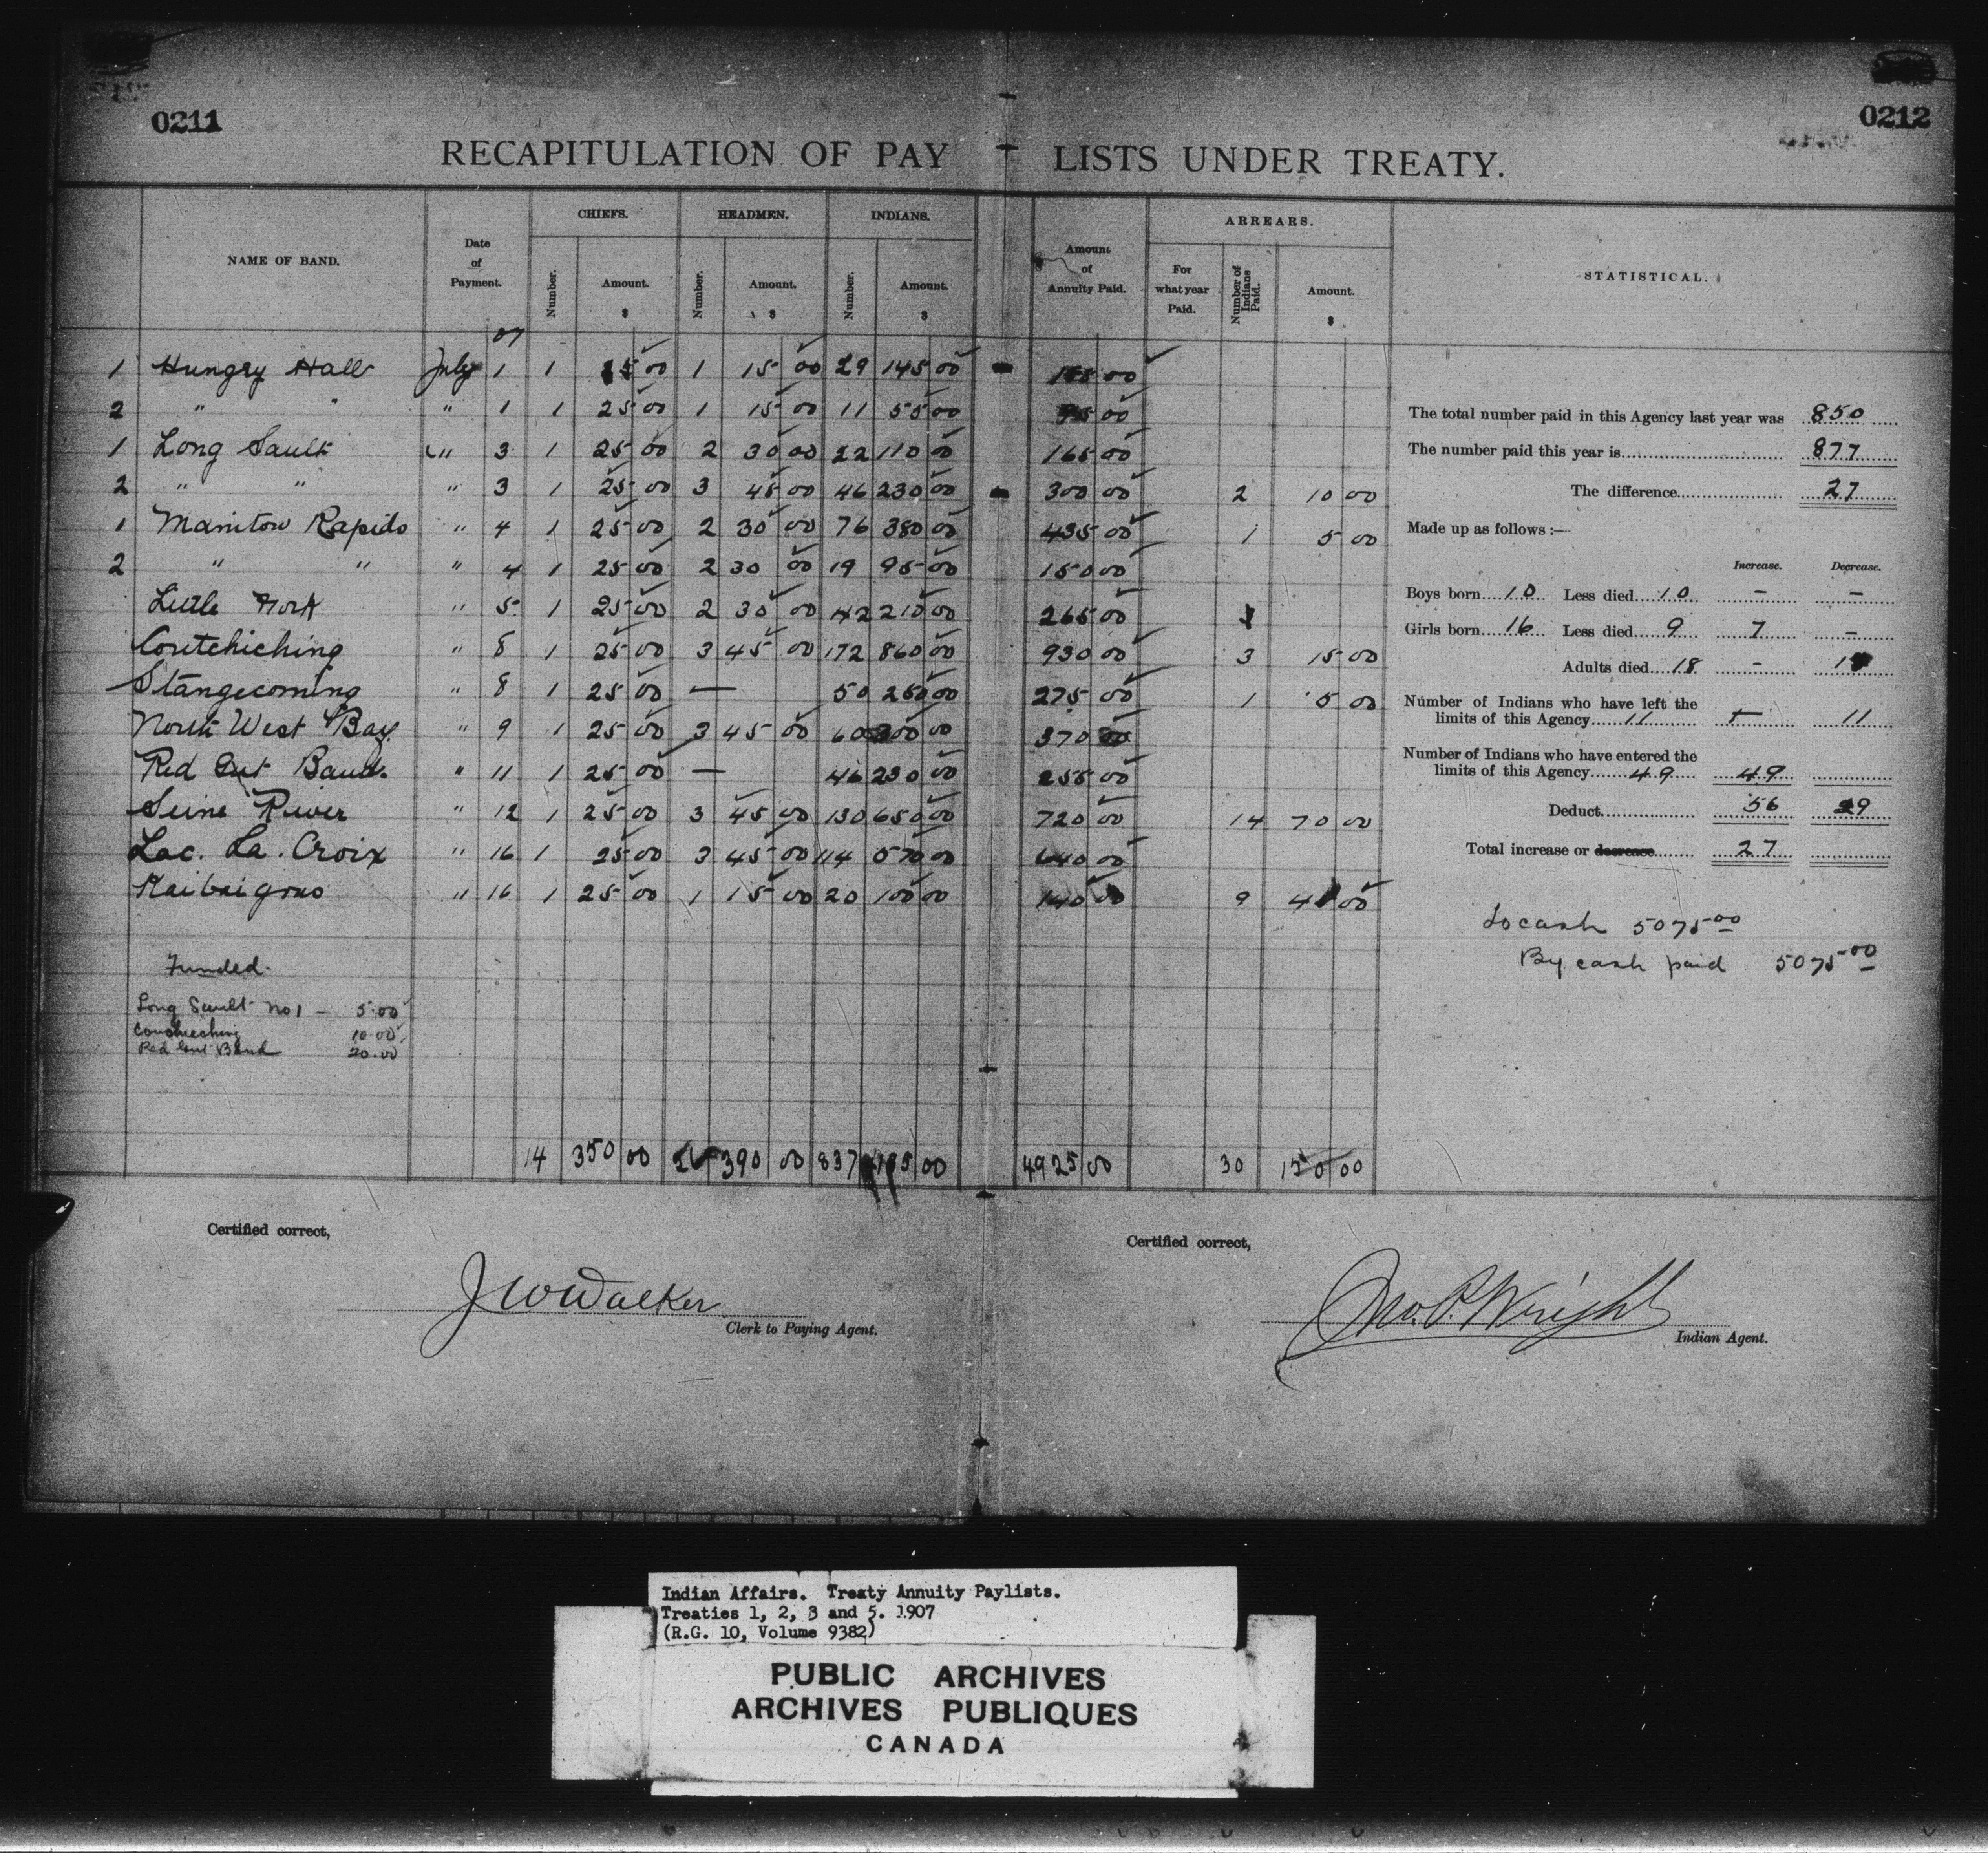 0211 0212
RECAPITULATION OF PAY LISTS UNDER TREATY.
NAME OF BAND. Date of Payment. CHIEFS. HEADMEN. INDIANS. Amount of Annuity Paid. ARREARS. STATISTICAL.
Number. Amount. $ Number. Amount. $ Number. Amount. $ For what year Paid. Number of Indians Paid. Amount. $
07
1 Hungry Hall July 1 1 25 00 1 15 00 29 145 00 00
2 " " " 1 1 25 00 1 15 00 11 55 00 95 00
1 Long Sault " 3 1 25 00 2 30 00 22 110 00 165 00
2 " " " 3 1 25 00 3 45 00 46 230 00 300 00 2 10 00
1 Manitou Rapids " 4 1 25 00 2 30 00 76 380 00 435 00 1 5 00
2 " " " 4 1 25 00 2 30 00 19 95 00 150 00
Little Fork " 5 1 25 00 2 30 00 42 210 00 265 00
Coutchiching " 8 1 25 00 3 45 00 172 860 00 930 00 3 15 00
Stangecoming " 8 1 25 00 — 50 250 00 275 00 1 5 00
North West Bay " 9 1 25 00 3 45 00 60 300 00 370 00
Red Gut Band " 11 1 25 00 — 46 230 00 255 00
Seine River " 12 1 25 00 3 45 00 130 650 00 720 00 14 70 00
Lac. La. Croix " 16 1 25 00 3 45 00 114 570 00 640 00
" 16 1 25 00 1 15 00 20 100 00 140 00 9 00
Funded.
Long Sault No 1 - 5.00
10.00
Red Gut Band 20.00
14 350 00 26 390 00 837 00 4925 00 30 150 00
The total number paid in this Agency last year was 850
The number paid this year is 877
The difference 27
Made up as follows :—
Increase. Decrease.
Boys born 10 Less died 10 — —
Girls born 16 Less died 9 7 —
Adults died 18 — 18
Number of Indians who have left the
limits of this Agency 11 — 11
Number of Indians who have entered the
limits of this Agency 49 49
Deduct 56 29
Total increase or decrease 27
To cash 5075.00
By cash paid 5075.00
Certified correct, Certified correct,
J W Walker Jno. P. Wright
Clerk to Paying Agent. Indian Agent.
Indian Affairs. Treaty Annuity Paylists.
Treaties 1, 2, 3 and 5. 1907
(R.G. 10, Volume 9382)
PUBLIC ARCHIVES
ARCHIVES PUBLIQUES
CANADA